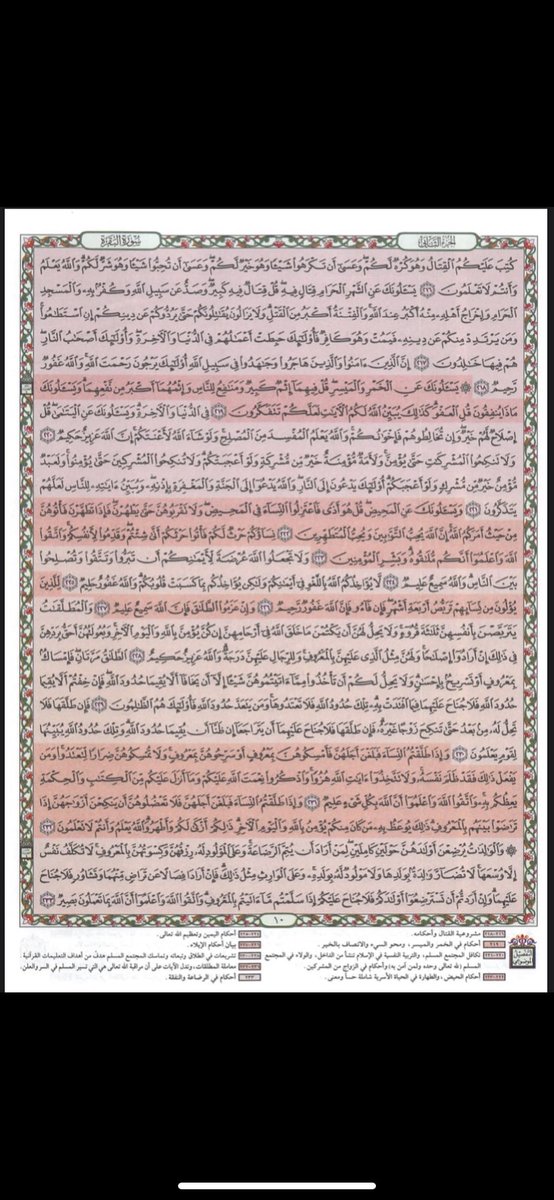 الجزء الثاني
سورة البقرة
كُتِبَ عَلَيْكُمُ الْقِتَالُ وَهُوَ كُرْهٌ لَّكُمْ وَعَسَىٰ أَن تَكْرَهُوا شَيْئًا وَهُوَ خَيْرٌ لَّكُمْ وَعَسَىٰ أَن تُحِبُّوا شَيْئًا وَهُوَ شَرٌّ لَّكُمْ وَاللَّهُ يَعْلَمُ
وَأَنتُمْ لَا تَعْلَمُونَ ٢١٦ يَسْـَٔلُونَكَ عَنِ الشَّهْرِ الْحَرَامِ قِتَالٍ فِيهِ قُلْ قِتَالٌ فِيهِ كَبِيرٌ وَصَدٌّ عَن سَبِيلِ اللَّهِ وَكُفْرٌ بِهِ وَالْمَسْجِدِ
الْحَرَامِ وَإِخْرَاجُ أَهْلِهِ مِنْهُ أَكْبَرُ عِندَ اللَّهِ وَالْفِتْنَةُ أَكْبَرُ مِنَ الْقَتْلِ وَلَا يَزَالُونَ يُقَاتِلُونَكُمْ حَتَّىٰ يَرُدُّوكُمْ عَن دِينِكُمْ إِنِ اسْتَطَاعُوا
وَمَن يَرْتَدِدْ مِنكُمْ عَن دِينِهِ فَيَمُتْ وَهُوَ كَافِرٌ فَأُولَٰئِكَ حَبِطَتْ أَعْمَالُهُمْ فِي الدُّنْيَا وَالْآخِرَةِ وَأُولَٰئِكَ أَصْحَابُ النَّارِ
هُمْ فِيهَا خَالِدُونَ ٢١٧ إِنَّ الَّذِينَ ءَامَنُوا وَالَّذِينَ هَاجَرُوا وَجَاهَدُوا فِي سَبِيلِ اللَّهِ أُولَٰئِكَ يَرْجُونَ رَحْمَتَ اللَّهِ وَاللَّهُ غَفُورٌ
رَّحِيمٌ ٢١٨ ۞ يَسْـَٔلُونَكَ عَنِ الْخَمْرِ وَالْمَيْسِرِ قُلْ فِيهِمَا إِثْمٌ كَبِيرٌ وَمَنَافِعُ لِلنَّاسِ وَإِثْمُهُمَا أَكْبَرُ مِن نَّفْعِهِمَا وَيَسْـَٔلُونَكَ
مَاذَا يُنفِقُونَ قُلِ الْعَفْوَ كَذَٰلِكَ يُبَيِّنُ اللَّهُ لَكُمُ الْآيَاتِ لَعَلَّكُمْ تَتَفَكَّرُونَ ٢١٩ فِي الدُّنْيَا وَالْآخِرَةِ وَيَسْـَٔلُونَكَ عَنِ الْيَتَامَىٰ قُلْ
إِصْلَاحٌ لَّهُمْ خَيْرٌ وَإِن تُخَالِطُوهُمْ فَإِخْوَانُكُمْ وَاللَّهُ يَعْلَمُ الْمُفْسِدَ مِنَ الْمُصْلِحِ وَلَوْ شَاءَ اللَّهُ لَأَعْنَتَكُمْ إِنَّ اللَّهَ عَزِيزٌ حَكِيمٌ ٢٢٠
وَلَا تَنكِحُوا الْمُشْرِكَاتِ حَتَّىٰ يُؤْمِنَّ وَلَأَمَةٌ مُّؤْمِنَةٌ خَيْرٌ مِّن مُّشْرِكَةٍ وَلَوْ أَعْجَبَتْكُمْ وَلَا تُنكِحُوا الْمُشْرِكِينَ حَتَّىٰ يُؤْمِنُوا وَلَعَبْدٌ
مُّؤْمِنٌ خَيْرٌ مِّن مُّشْرِكٍ وَلَوْ أَعْجَبَكُمْ أُولَٰئِكَ يَدْعُونَ إِلَى النَّارِ وَاللَّهُ يَدْعُو إِلَى الْجَنَّةِ وَالْمَغْفِرَةِ بِإِذْنِهِ وَيُبَيِّنُ ءَايَاتِهِ لِلنَّاسِ لَعَلَّهُمْ
يَتَذَكَّرُونَ ٢٢١ وَيَسْـَٔلُونَكَ عَنِ الْمَحِيضِ قُلْ هُوَ أَذًى فَاعْتَزِلُوا النِّسَاءَ فِي الْمَحِيضِ وَلَا تَقْرَبُوهُنَّ حَتَّىٰ يَطْهُرْنَ فَإِذَا تَطَهَّرْنَ فَأْتُوهُنَّ
مِنْ حَيْثُ أَمَرَكُمُ اللَّهُ إِنَّ اللَّهَ يُحِبُّ التَّوَّابِينَ وَيُحِبُّ الْمُتَطَهِّرِينَ ٢٢٢ نِسَاؤُكُمْ حَرْثٌ لَّكُمْ فَأْتُوا حَرْثَكُمْ أَنَّىٰ شِئْتُمْ وَقَدِّمُوا لِأَنفُسِكُمْ وَاتَّقُوا
اللَّهَ وَاعْلَمُوا أَنَّكُم مُّلَاقُوهُ وَبَشِّرِ الْمُؤْمِنِينَ ٢٢٣ وَلَا تَجْعَلُوا اللَّهَ عُرْضَةً لِّأَيْمَانِكُمْ أَن تَبَرُّوا وَتَتَّقُوا وَتُصْلِحُوا
بَيْنَ النَّاسِ وَاللَّهُ سَمِيعٌ عَلِيمٌ ٢٢٤ لَّا يُؤَاخِذُكُمُ اللَّهُ بِاللَّغْوِ فِي أَيْمَانِكُمْ وَلَٰكِن يُؤَاخِذُكُم بِمَا كَسَبَتْ قُلُوبُكُمْ وَاللَّهُ غَفُورٌ حَلِيمٌ ٢٢٥ لِّلَّذِينَ
يُؤْلُونَ مِن نِّسَائِهِمْ تَرَبُّصُ أَرْبَعَةِ أَشْهُرٍ فَإِن فَاءُو فَإِنَّ اللَّهَ غَفُورٌ رَّحِيمٌ ٢٢٦ وَإِنْ عَزَمُوا الطَّلَاقَ فَإِنَّ اللَّهَ سَمِيعٌ عَلِيمٌ ٢٢٧ وَالْمُطَلَّقَاتُ
يَتَرَبَّصْنَ بِأَنفُسِهِنَّ ثَلَاثَةَ قُرُوءٍ وَلَا يَحِلُّ لَهُنَّ أَن يَكْتُمْنَ مَا خَلَقَ اللَّهُ فِي أَرْحَامِهِنَّ إِن كُنَّ يُؤْمِنَّ بِاللَّهِ وَالْيَوْمِ الْآخِرِ وَبُعُولَتُهُنَّ أَحَقُّ بِرَدِّهِنَّ
فِي ذَٰلِكَ إِنْ أَرَادُوا إِصْلَاحًا وَلَهُنَّ مِثْلُ الَّذِي عَلَيْهِنَّ بِالْمَعْرُوفِ وَلِلرِّجَالِ عَلَيْهِنَّ دَرَجَةٌ وَاللَّهُ عَزِيزٌ حَكِيمٌ ٢٢٨ الطَّلَاقُ مَرَّتَانِ فَإِمْسَاكٌ
بِمَعْرُوفٍ أَوْ تَسْرِيحٌ بِإِحْسَانٍ وَلَا يَحِلُّ لَكُمْ أَن تَأْخُذُوا مِمَّا ءَاتَيْتُمُوهُنَّ شَيْئًا إِلَّا أَن يَخَافَا أَلَّا يُقِيمَا حُدُودَ اللَّهِ فَإِنْ خِفْتُمْ أَلَّا يُقِيمَا
حُدُودَ اللَّهِ فَلَا جُنَاحَ عَلَيْهِمَا فِيمَا افْتَدَتْ بِهِ تِلْكَ حُدُودُ اللَّهِ فَلَا تَعْتَدُوهَا وَمَن يَتَعَدَّ حُدُودَ اللَّهِ فَأُولَٰئِكَ هُمُ الظَّالِمُونَ ٢٢٩ فَإِن طَلَّقَهَا فَلَا
تَحِلُّ لَهُ مِن بَعْدُ حَتَّىٰ تَنكِحَ زَوْجًا غَيْرَهُ فَإِن طَلَّقَهَا فَلَا جُنَاحَ عَلَيْهِمَا أَن يَتَرَاجَعَا إِن ظَنَّا أَن يُقِيمَا حُدُودَ اللَّهِ وَتِلْكَ حُدُودُ اللَّهِ يُبَيِّنُهَا
لِقَوْمٍ يَعْلَمُونَ ٢٣٠ وَإِذَا طَلَّقْتُمُ النِّسَاءَ فَبَلَغْنَ أَجَلَهُنَّ فَأَمْسِكُوهُنَّ بِمَعْرُوفٍ أَوْ سَرِّحُوهُنَّ بِمَعْرُوفٍ وَلَا تُمْسِكُوهُنَّ ضِرَارًا لِّتَعْتَدُوا وَمَن
يَفْعَلْ ذَٰلِكَ فَقَدْ ظَلَمَ نَفْسَهُ وَلَا تَتَّخِذُوا ءَايَاتِ اللَّهِ هُزُوًا وَاذْكُرُوا نِعْمَتَ اللَّهِ عَلَيْكُمْ وَمَا أَنزَلَ عَلَيْكُم مِّنَ الْكِتَابِ وَالْحِكْمَةِ
يَعِظُكُم بِهِ وَاتَّقُوا اللَّهَ وَاعْلَمُوا أَنَّ اللَّهَ بِكُلِّ شَيْءٍ عَلِيمٌ ٢٣١ وَإِذَا طَلَّقْتُمُ النِّسَاءَ فَبَلَغْنَ أَجَلَهُنَّ فَلَا تَعْضُلُوهُنَّ أَن يَنكِحْنَ أَزْوَاجَهُنَّ إِذَا
تَرَاضَوْا بَيْنَهُم بِالْمَعْرُوفِ ذَٰلِكَ يُوعَظُ بِهِ مَن كَانَ مِنكُمْ يُؤْمِنُ بِاللَّهِ وَالْيَوْمِ الْآخِرِ ذَٰلِكُمْ أَزْكَىٰ لَكُمْ وَأَطْهَرُ وَاللَّهُ يَعْلَمُ وَأَنتُمْ لَا تَعْلَمُونَ ٢٣٢
۞ وَالْوَالِدَاتُ يُرْضِعْنَ أَوْلَادَهُنَّ حَوْلَيْنِ كَامِلَيْنِ لِمَنْ أَرَادَ أَن يُتِمَّ الرَّضَاعَةَ وَعَلَى الْمَوْلُودِ لَهُ رِزْقُهُنَّ وَكِسْوَتُهُنَّ بِالْمَعْرُوفِ لَا تُكَلَّفُ نَفْسٌ
إِلَّا وُسْعَهَا لَا تُضَارَّ وَالِدَةٌ بِوَلَدِهَا وَلَا مَوْلُودٌ لَّهُ بِوَلَدِهِ وَعَلَى الْوَارِثِ مِثْلُ ذَٰلِكَ فَإِنْ أَرَادَا فِصَالًا عَن تَرَاضٍ مِّنْهُمَا وَتَشَاوُرٍ فَلَا جُنَاحَ
عَلَيْهِمَا وَإِنْ أَرَدتُّمْ أَن تَسْتَرْضِعُوا أَوْلَادَكُمْ فَلَا جُنَاحَ عَلَيْكُمْ إِذَا سَلَّمْتُم مَّا ءَاتَيْتُم بِالْمَعْرُوفِ وَاتَّقُوا اللَّهَ وَاعْلَمُوا أَنَّ اللَّهَ بِمَا تَعْمَلُونَ بَصِيرٌ ٢٣٣
١٠
مشروعية القتال وأحكامه.
أحكام في الخمر والميسر، ومحو السيء والاتصاف بالخير.
تكافل المجتمع المسلم، والتربية النفسية في الإسلام تنشأ من الداخل، والولاء في المجتمع
المسلم (لله تعالى وحده ولمن آمن به) وأحكام في الزواج من المشركين.
أحكام الحيض، والطهارة في الحياة الأسرية شاملة حساً ومعنى.
أحكام اليمين وتعظيم الله تعالى.
بيان أحكام الإيلاء.
تشريعات في الطلاق وتبعاته وتماسك المجتمع المسلم هدف من أهداف التعليمات القرآنية.
معاملة المطلقات، وتدل الآيات على أن مراقبة الله تعالى هي التي تسير المسلم في السر والعلن.
أحكام في الرضاعة والنفقة.